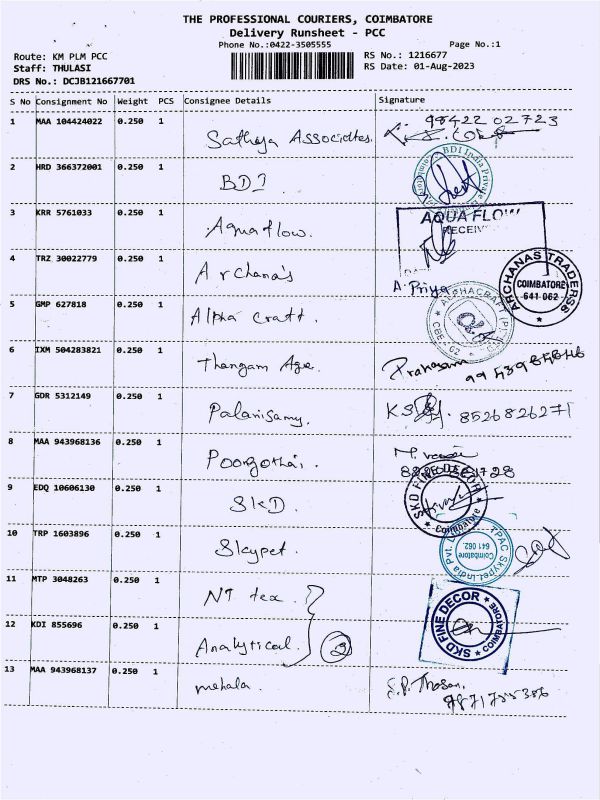 THE PROFESSIONAL COURIERS, COIMBATORE
Delivery Runsheet - PCC
Phone No.:0422-3505555
Page No.:1
Route: KM PLM PCC
RS No.: 1216677
Staff: THULASI
RS Date: 01-Aug-2023
DRS No.: DCJB121667701
S No Consignment No Weight PCS Consignee Details Signature
1 MAA 104424022 0.250 1 Sathya Associates. 98422 02723
2 HRD 366372001 0.250 1 BDI. BDI India Private
3 KRR 5761033 0.250 1 Aquaflow. AQUA FLOW
RECEIV
4 TRZ 30022779 0.250 1 Archana's A. Priya ARCHANAS TRADERSS COIMBATORE 641 062
5 GMP 627818 0.250 1 Alpha craft. ALPHACRAFT (P) CBE - 62
6 IXM 504283821 0.250 1 Thangam Age.
7 GDR 5312149 0.250 1 Palanisamy. 8526826271
8 MAA 943968136 0.250 1 Poongothai.
9 EDQ 10606130 0.250 1 SKD. SKD FINE DECOR Coimbatore
10 TRP 1603896 0.250 1 Skypet. TPAC Skypet India Pvt. Coimbatore 641 062.
11 MTP 3048263 0.250 1 NT tex.
12 KDI 855696 0.250 1 Analytical. 2 SKD FINE DECOR COIMBATORE
13 MAA 943968137 0.250 1 mehala.